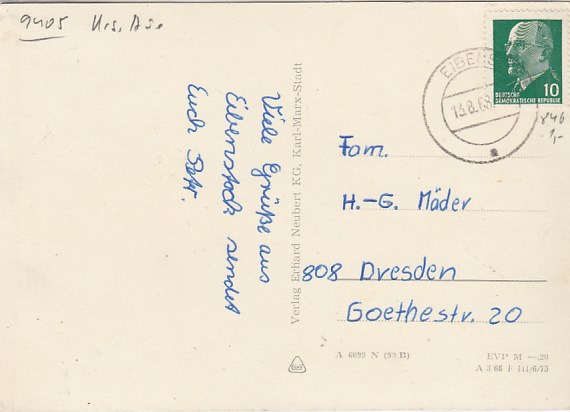 9405
Viele Grüße aus
Eibenstock sendet
Euch
Verlag Erhard Neubert KG, Karl-Marx-Stadt
DEUTSCHE
DEMOKRATISCHE REPUBLIK
10
EIBENS
13.8.68
1,-
Fam.
H.-G. Mäder
808 Dresden
Goethestr. 20
A 6099 N (53 B)
EVP M —.20
A 3/68 F III/6/75